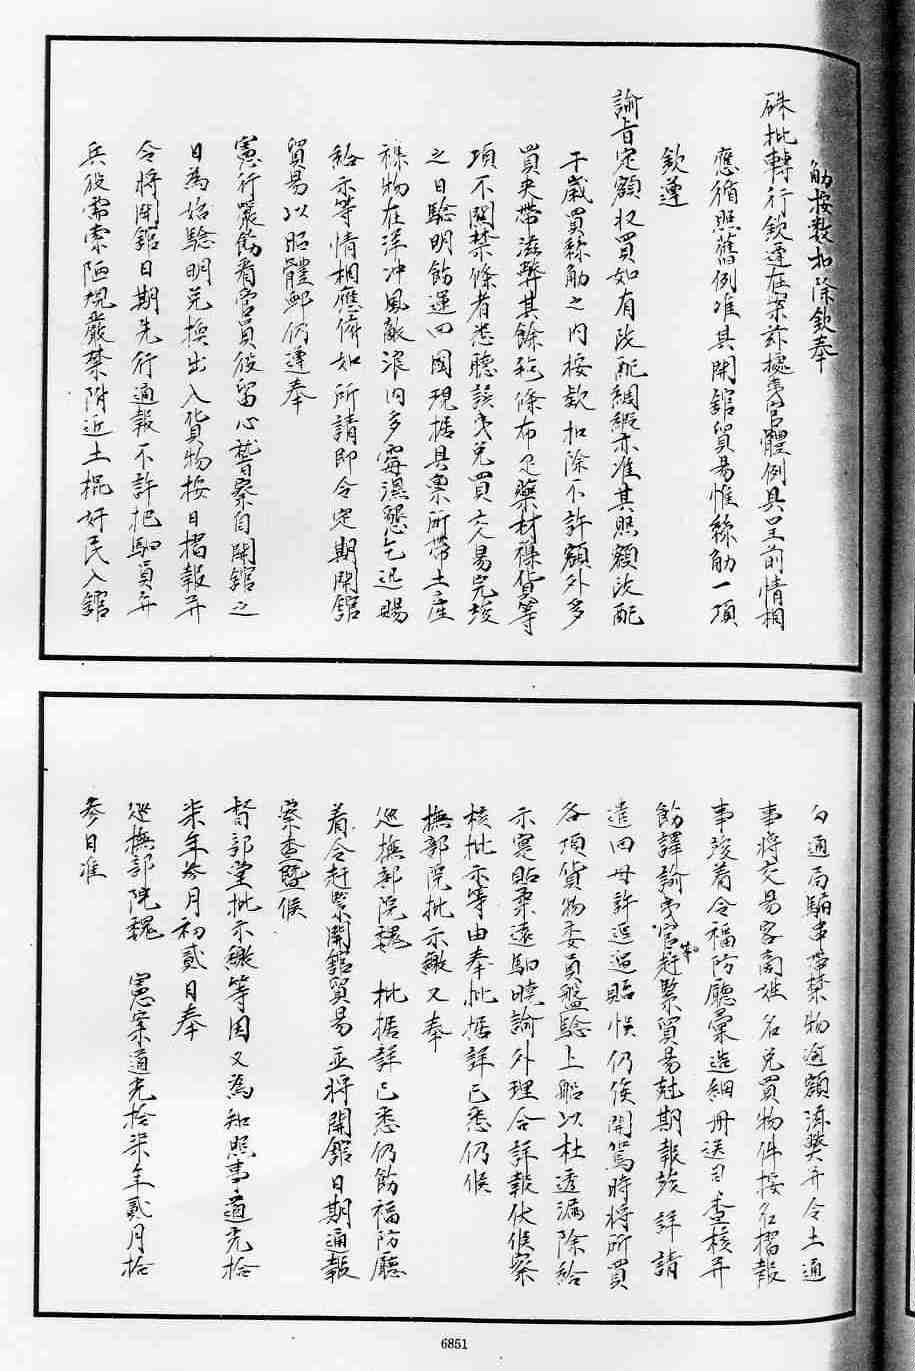 觔按數扣除欽奉
硃批轉行欽遵在案茲據夷官體例具呈前情相
應循照舊例准其開館貿易惟絲觔一項
欽遵
諭旨定額収買如有改配綢緞亦准其照額改配
干歲買絲觔之内按欵扣除不許額外多
買夾帶滋弊其餘純條布疋藥材襍貨等
項不關禁條者悉聽該夷兌買交易完竣
之日驗明飭運回國現據具禀所帶土産
襍物在洋冲風敵浪内多霉濕懇乞迅賜
給示等情相應俯如所請即令定期開館
貿易以昭體卹仍遵奉
憲行嚴飭看管員役留心稽察自開館之
日為始驗明兌換出入貨物按日摺報并
令將開館日期先行通報不許把馹員弁
兵役需索陋規嚴禁附近土棍奸民入館
勾通局騙串帶禁物逾額滋弊并令土通
事將交易客商姓名兌買物件按名摺報
事竣着令福防廳彙造細冊送司查核并
飭譯諭夷官趕緊貿易尅期報竣詳請
遣回毋許遲逗貽悞仍俟開駕時將所買
各項貨物委員盤驗上船以杜透漏除給
示寔貼柔遠馹曉諭外理合詳報伏候察
核批示等由奉批據詳已悉仍候
撫部院批示繳又奉
巡撫部院魏 批據詳已悉仍飭福防廳
着令赶緊開館貿易並將開館日期通報
察查曁候
督部堂批示繳等因又為知照事道光拾
柒年叁月初貳日奉
巡撫部院魏 憲案道光拾柒年貳月拾
叁日准
6851